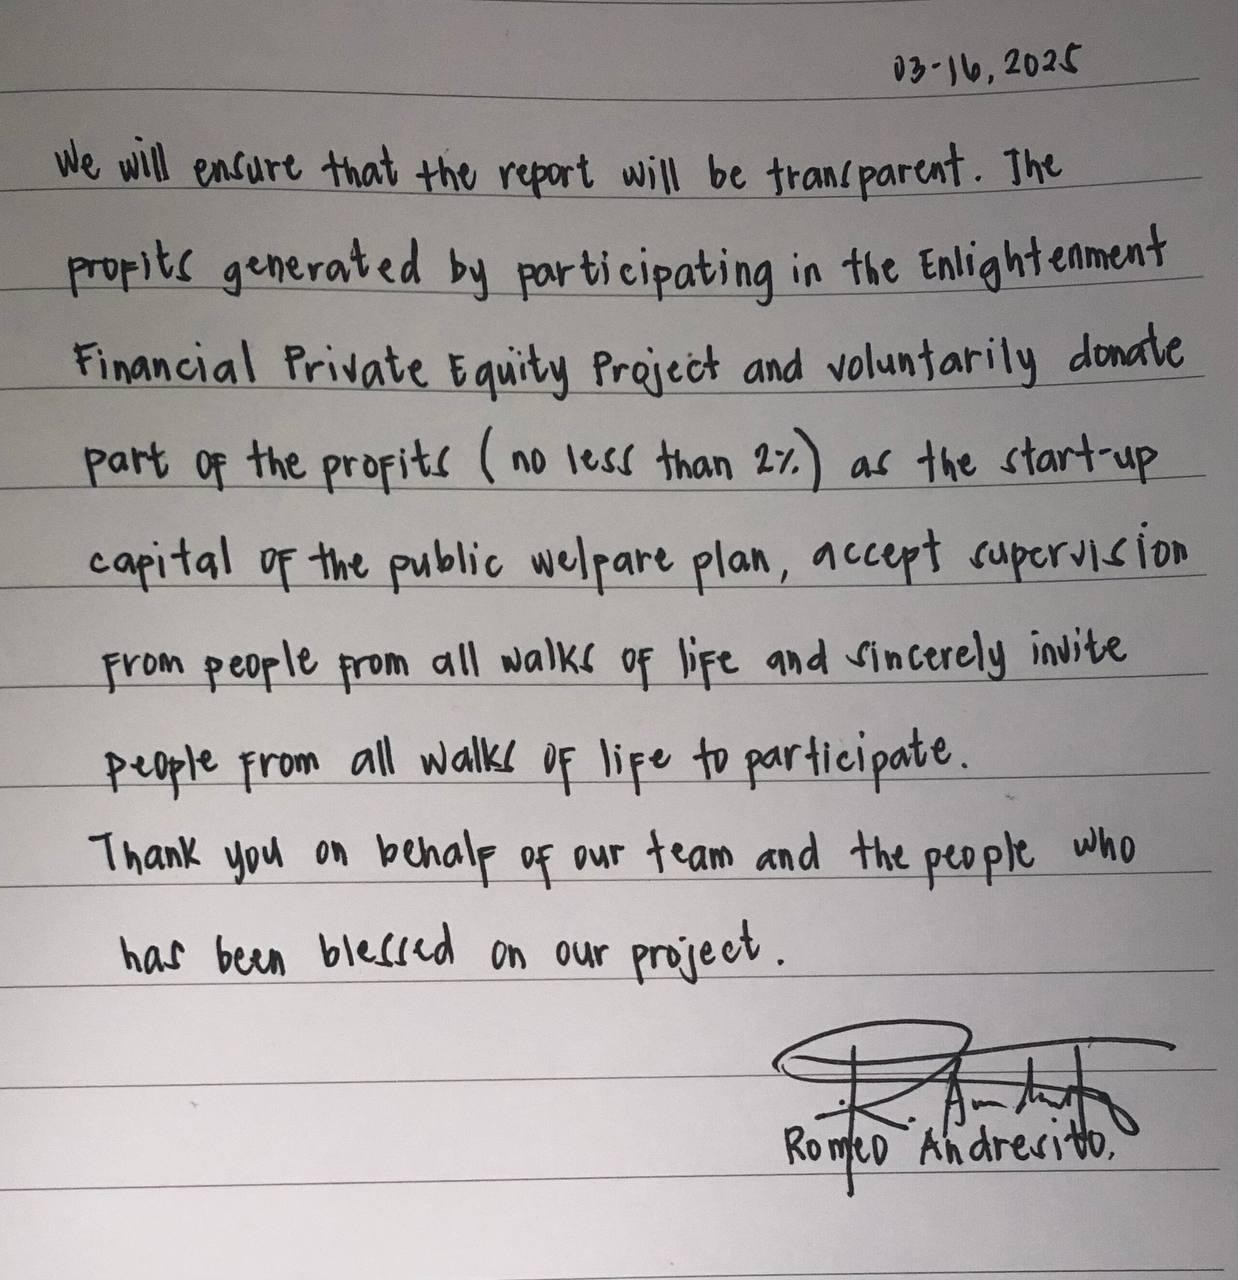 03-16, 2025
We will ensure that the report will be transparent. The
profits generated by participating in the Enlightenment
Financial Private Equity Project and voluntarily donate
part of the profits (no less than 2%) as the start-up
capital of the public welpare plan, accept supervision
from people from all walks of life and sincerely invite
people from all walks of life to participate.
Thank you on behalf of our team and the people who
has been blessed on our project.
R. 
Romeo Andresitto.